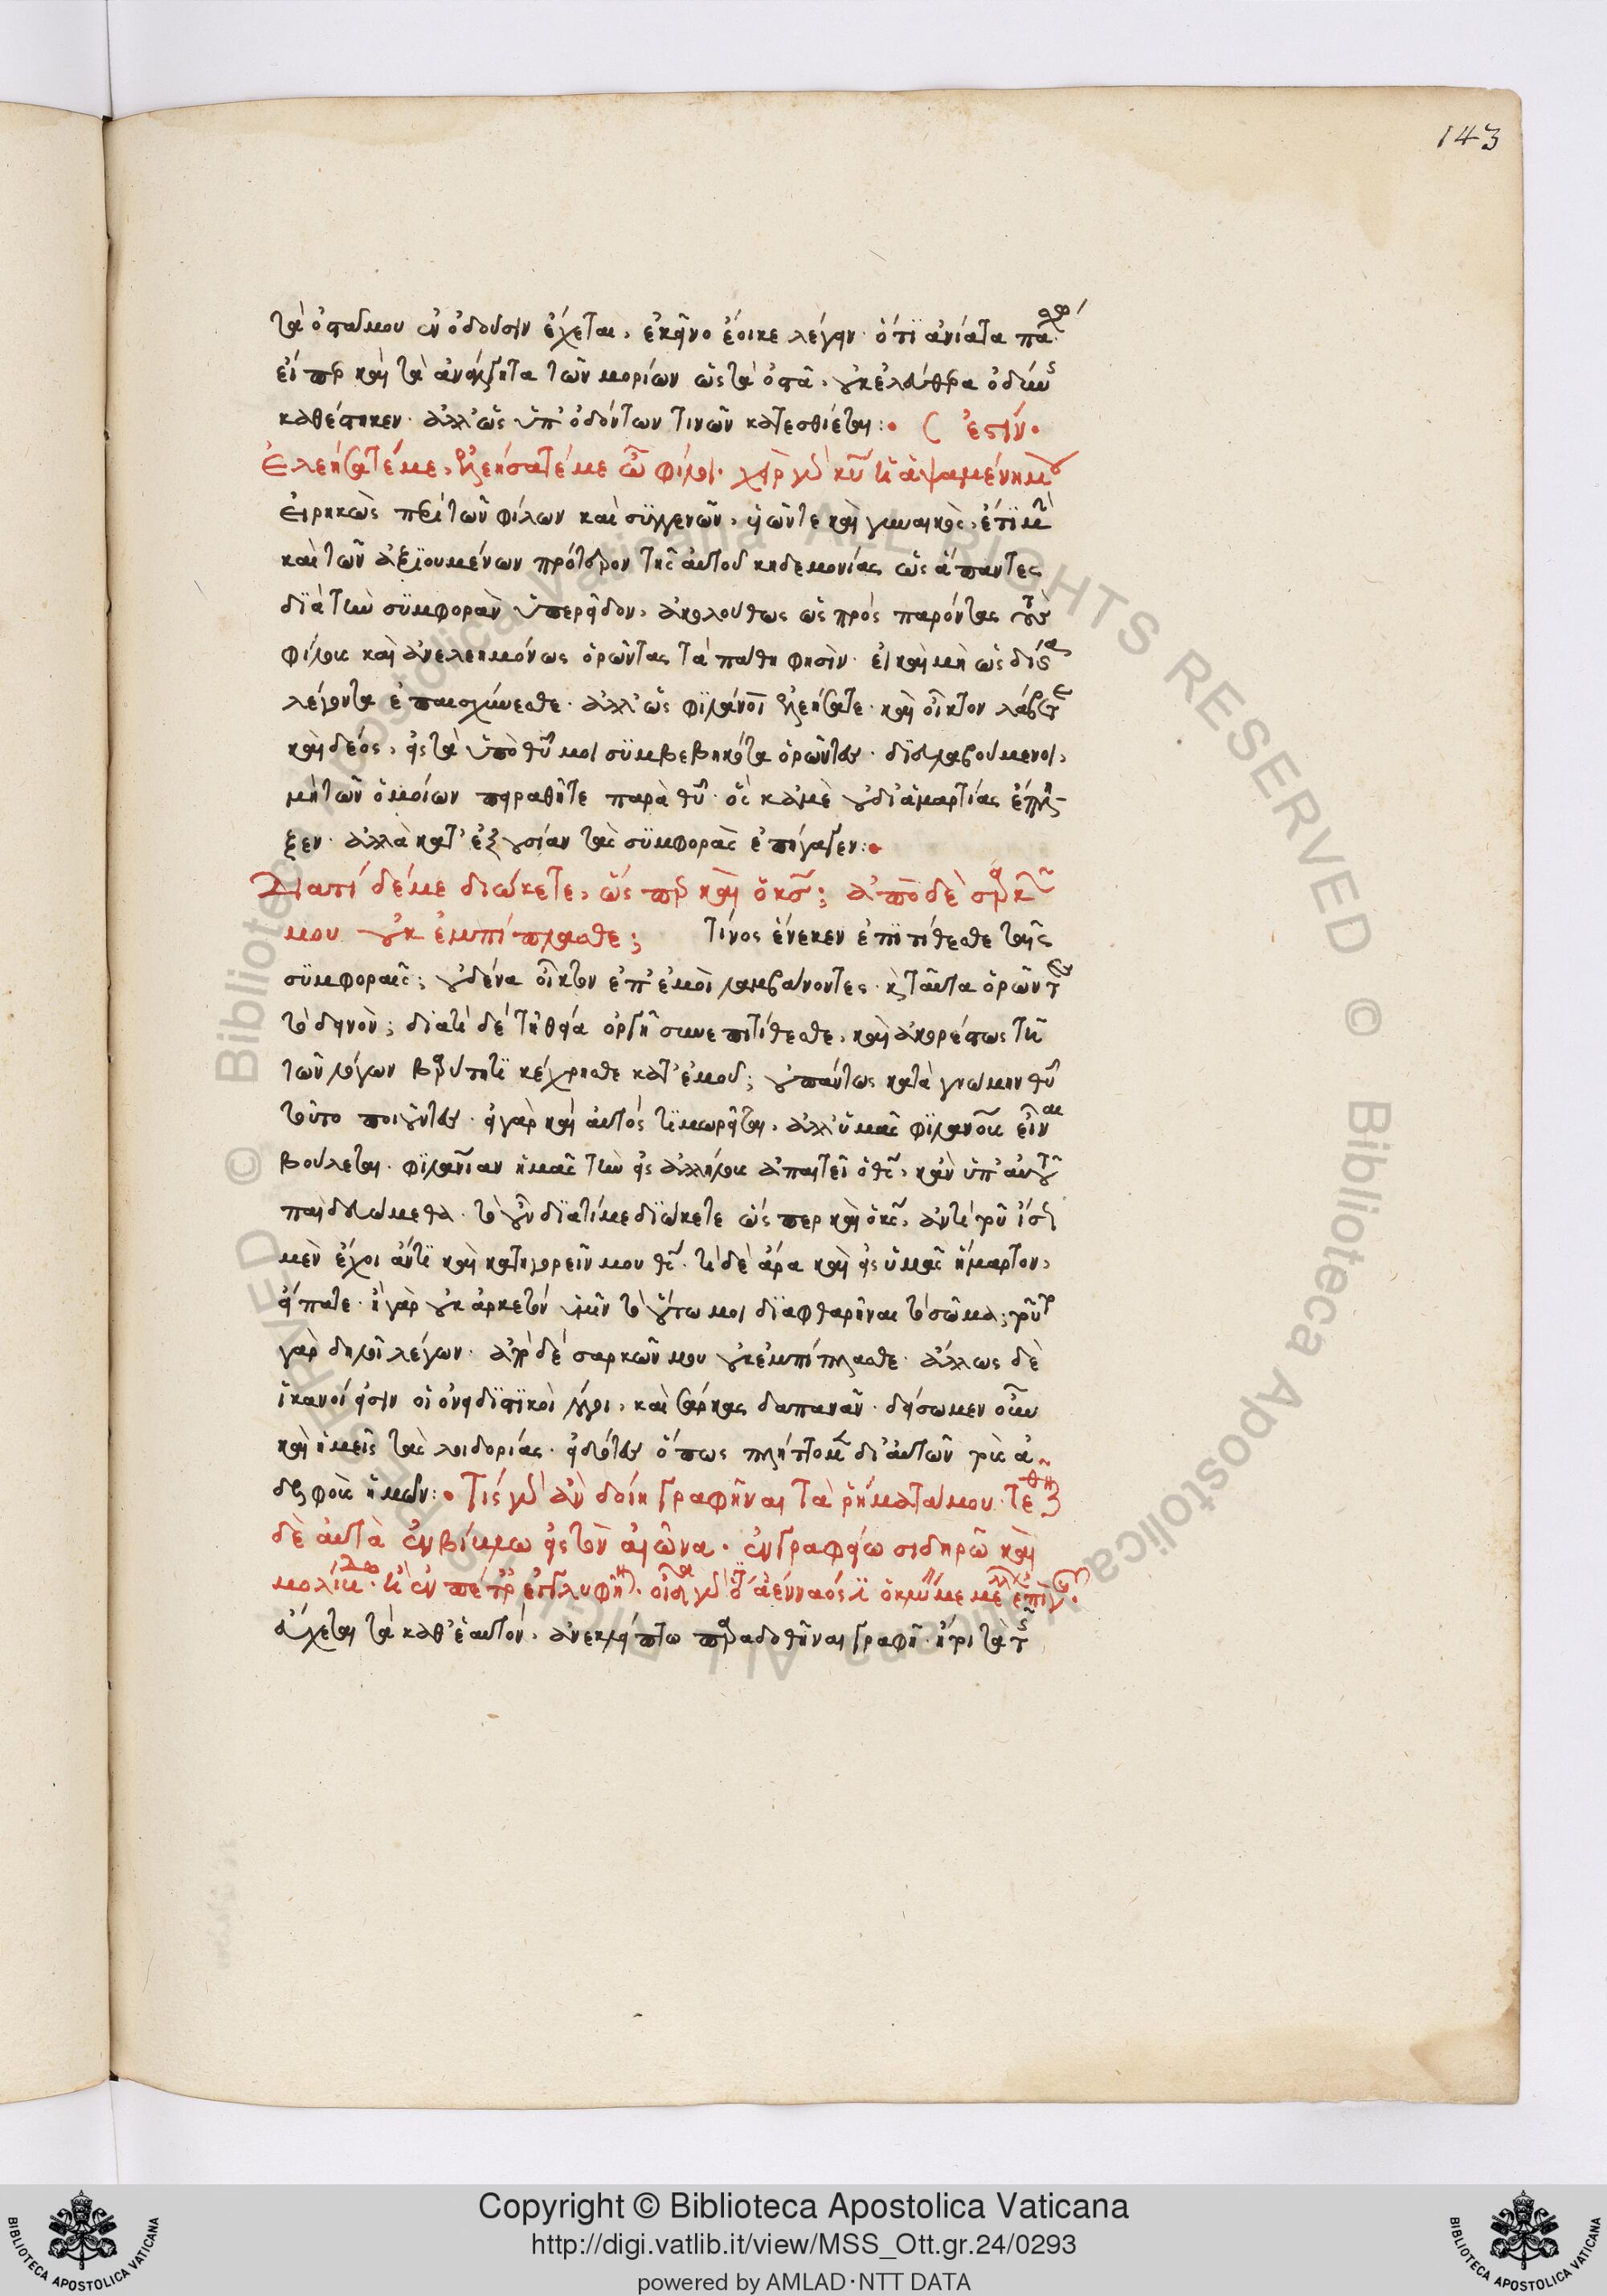 143
τὰ ὀστᾶ μου ἐν ὀδοῦσιν ἔχεται, ἐκεῖνο ἔοικε λέγειν· ὅτι ἀνίατα πά
εἴπερ καὶ τὰ ἀναίσθητα τῶν μορίων ὡς τὰ ὀστᾶ, οὐκ ἐλεύθερα ὀδύνης
καθέστηκεν· ἀλλ' ὡς ὑπ' ὀδόντων τινῶν κατεσθίεται: ἐστίν·
Ἐλεήσατέ με, ἐλεήσατέ με ὦ φίλοι· χεὶρ γὰρ κυ ἡ ἁψαμένη μου
εἰρηκὼς περὶ τῶν φίλων καὶ συγγενῶν, υἱῶν τε καὶ γυναικὸς, ἔτι μὴν
καὶ τῶν ἀξιουμένων πρότερον τῆς αὐτοῦ κηδεμονίας ὡς ἅπαντες
διὰ τὴν συμφορὰν ὑπερεῖδον, ἀκολούθως ὡς πρὸς παρόντας τοὺς
φίλους καὶ ἀνελεημόνως ὁρῶντας τὰ πάθη φησὶν· εἰ καὶ μὴ ὡς δίκαια
λέγοντα ἐπαισχύνεσθε· ἀλλ' ὡς φιλάνοι ἐλεήσατε· καὶ οἶκτον λάβετε
καὶ δέος, εἰς τὰ ὑπὸ θυ μοι συμβεβηκότα ὁρῶντες· διευλαβούμενοι,
μὴ τῶν ὁμοίων πειραθῆτε παρὰ θυ· ὃς κἀμὲ οὐ δι' ἁμαρτίας ἔπληξεν
ξεν· ἀλλὰ κατ' ἐξουσίαν τὰς συμφορὰς ἐπήγαγεν:
Διατί δέ με διώκετε, ὥσπερ καὶ ὁ κς; ἀπὸ δὲ σαρκῶν
μου οὐκ ἐμπίπλασθε; Τίνος ἕνεκεν ἐπιτίθεσθε ταῖς
συμφοραῖς; οὐδένα οἶκτον ἐπ' ἐμοὶ λαμβάνοντες· καὶ ταῦτα ὁρῶντες
τὸ δεινὸν; διατί δὲ τῇ θεία ὀργῇ συνεπιτίθεσθε, καὶ ἀκορέστως τῇ
τῶν λόγων βαρύτητι κέχρησθε κατ' ἐμοῦ; οὐ πάντως κατὰ γνώμην θυ
τοῦτο ποιοῦντες· εἰ γὰρ καὶ αὐτὸς τιμωρεῖται, ἀλλ' ὑμᾶς φιλάνους εἶναι
βούλεται· φιλανίαν ἡμᾶς τὴν εἰς ἀλλήλους ἀπαιτεῖ ὁ θς, κἂν ὑπ' αὐτοῦ
παιδευώμεθα· τὸ οὖν διατί με διώκετε ὥσπερ καὶ ὁ κς, ἀντὶ τοῦ ἴσως
μὲν ἔχοι ἄν τι καὶ κατηγορεῖν μου θς· τί δὲ ἄρα καὶ εἰς ὑμᾶς ἥμαρτον,
εἴπατε· ἢ γὰρ οὐκ ἀρκετόν ὑμῖν τὸ οὕτω μοι διαφθαρῆναι τὸ σῶμα; τοῦτο
γὰρ δηλοῖ λέγων· ἀπὸ δὲ σαρκῶν μου οὐκ ἐμπίπλασθε· ἄλλως δὲ
ἱκανοί εἰσιν οἱ ὀνειδιστικοὶ λόγοι, καὶ σάρκας δαπανᾶν· δείσωμεν οὖν
καὶ ἡμεῖς τὰς λοιδορίας· εἰδότες ὅπως πλήττομεν δι' αὐτῶν τοὺς ἀ
δελφοὺς ἡμῶν: Τίς γὰρ ἂν δοίη γραφῆναι τὰ ῥήματά μου· τεθῆναι
δὲ αὐτὰ ἐν βίβλω εἰς τὸν αἰῶνα· ἐν γραφείω σιδηρῶ καὶ
μολίβω· ἢ ἐν πέτραις ἐγγλυφῆναι· οἶδα γὰρ ὅτι ἀένναός ἐστι ὁ ἐκλύειν με μέλλων ἐπὶ γῆς·
εὔχεται τὰ καθ' ἑαυτὸν, ἀνεκλείπτω παραδοθῆναι γραφῇ·
Copyright © Biblioteca Apostolica Vaticana
http://digi.vatlib.it/view/MSS_Ott.gr.24/0293
powered by AMLAD·NTT DATA